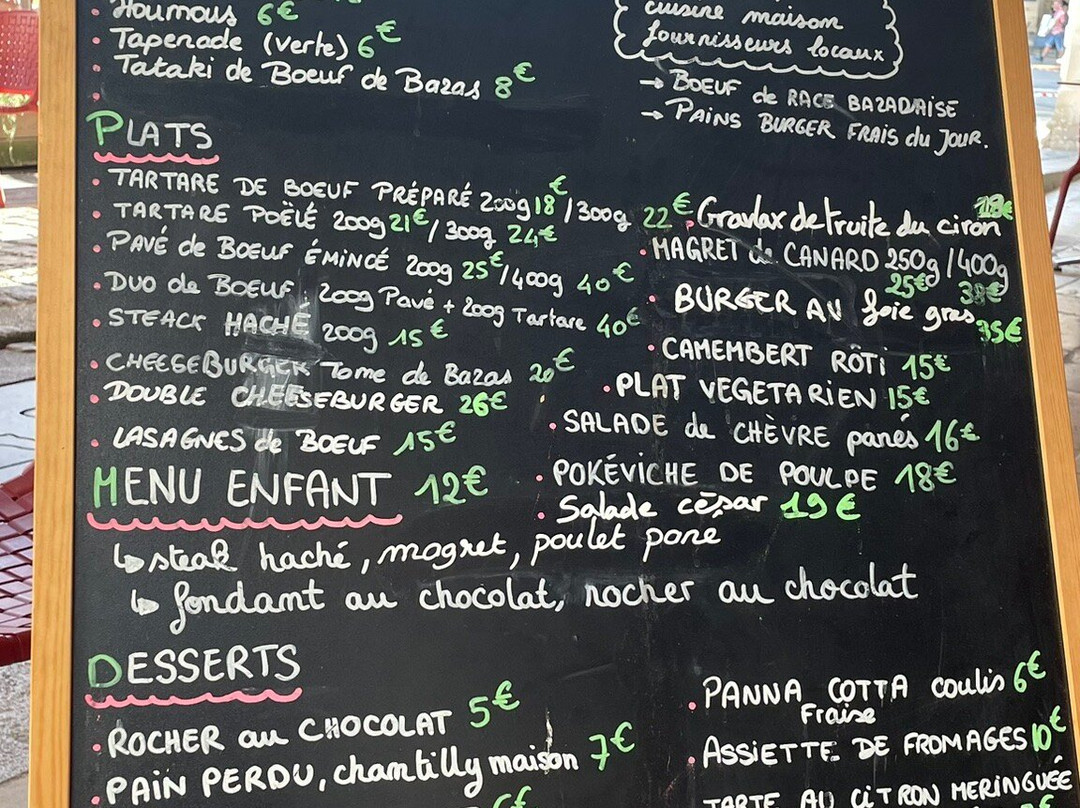 Houmous 6€
Tapenade (verte) 6€
Tataki de Boeuf de Bazas 8€
cuisine maison
fournisseurs locaux
→ BOEUF de RACE BAZADAISE
→ PAINS BURGER FRAIS du JOUR.
PLATS
TARTARE DE BOEUF PRÉPARÉ 200g 18€/300g 22€
TARTARE POÊLÉ 200g 21€/300g 24€
PAVÉ de BOEUF ÉMINCÉ 200g 25€/400g 40€
DUO de BOEUF : 200g Pavé + 200g Tartare 40€
STEACK HACHÉ 200g 15€
CHEESEBURGER Tome de Bazas 20€
DOUBLE CHEESEBURGER 26€
LASAGNES de BOEUF 15€
Gravlax de truite du ciron
MAGRET de CANARD 250g/400g
25€ 38€
BURGER AU foie gras 35€
CAMEMBERT RÔTI 15€
PLAT VEGETARIEN 15€
SALADE de CHÈVRE panés 16€
POKÉVICHE DE POULPE 18€
Salade césar 19€
MENU ENFANT 12€
↳ steak haché, magret, poulet pané
↳ fondant au chocolat, rocher au chocolat
DESSERTS
ROCHER au CHOCOLAT 5€
PAIN PERDU, chantilly maison 7€
PANNA COTTA coulis 6€
Fraise
ASSIETTE DE FROMAGES 10€
TARTE AU CITRON MERINGUÉE